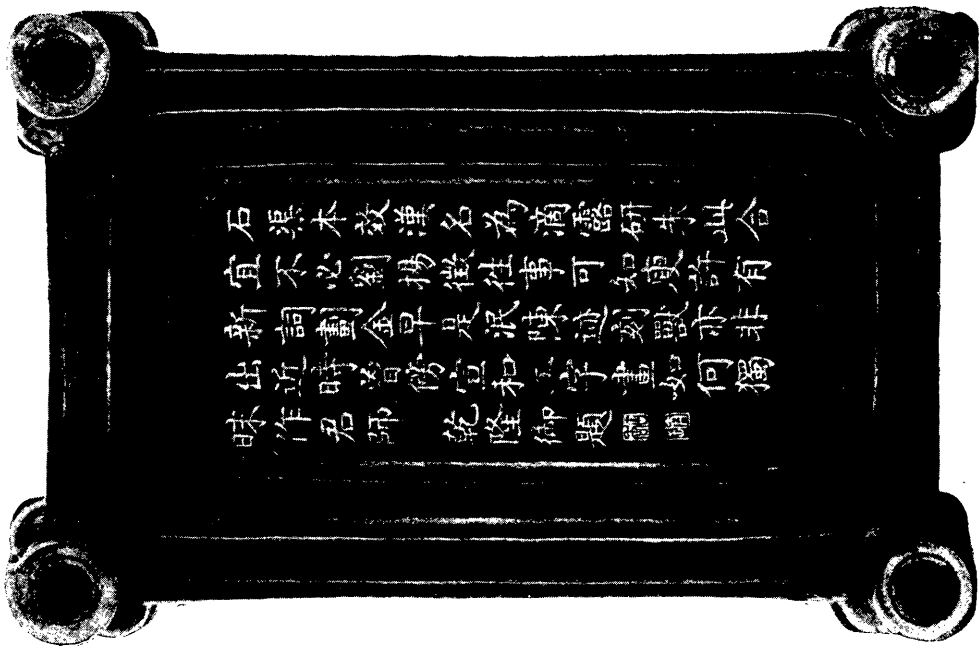 石渠本效漢名為滴露研朱此合
宜不必劉揚徵往事可知更許有
新詞劃金早是泯陳迹刻獸亦非
出近時宣和工字畫如何獨
昧作君師 乾隆御題